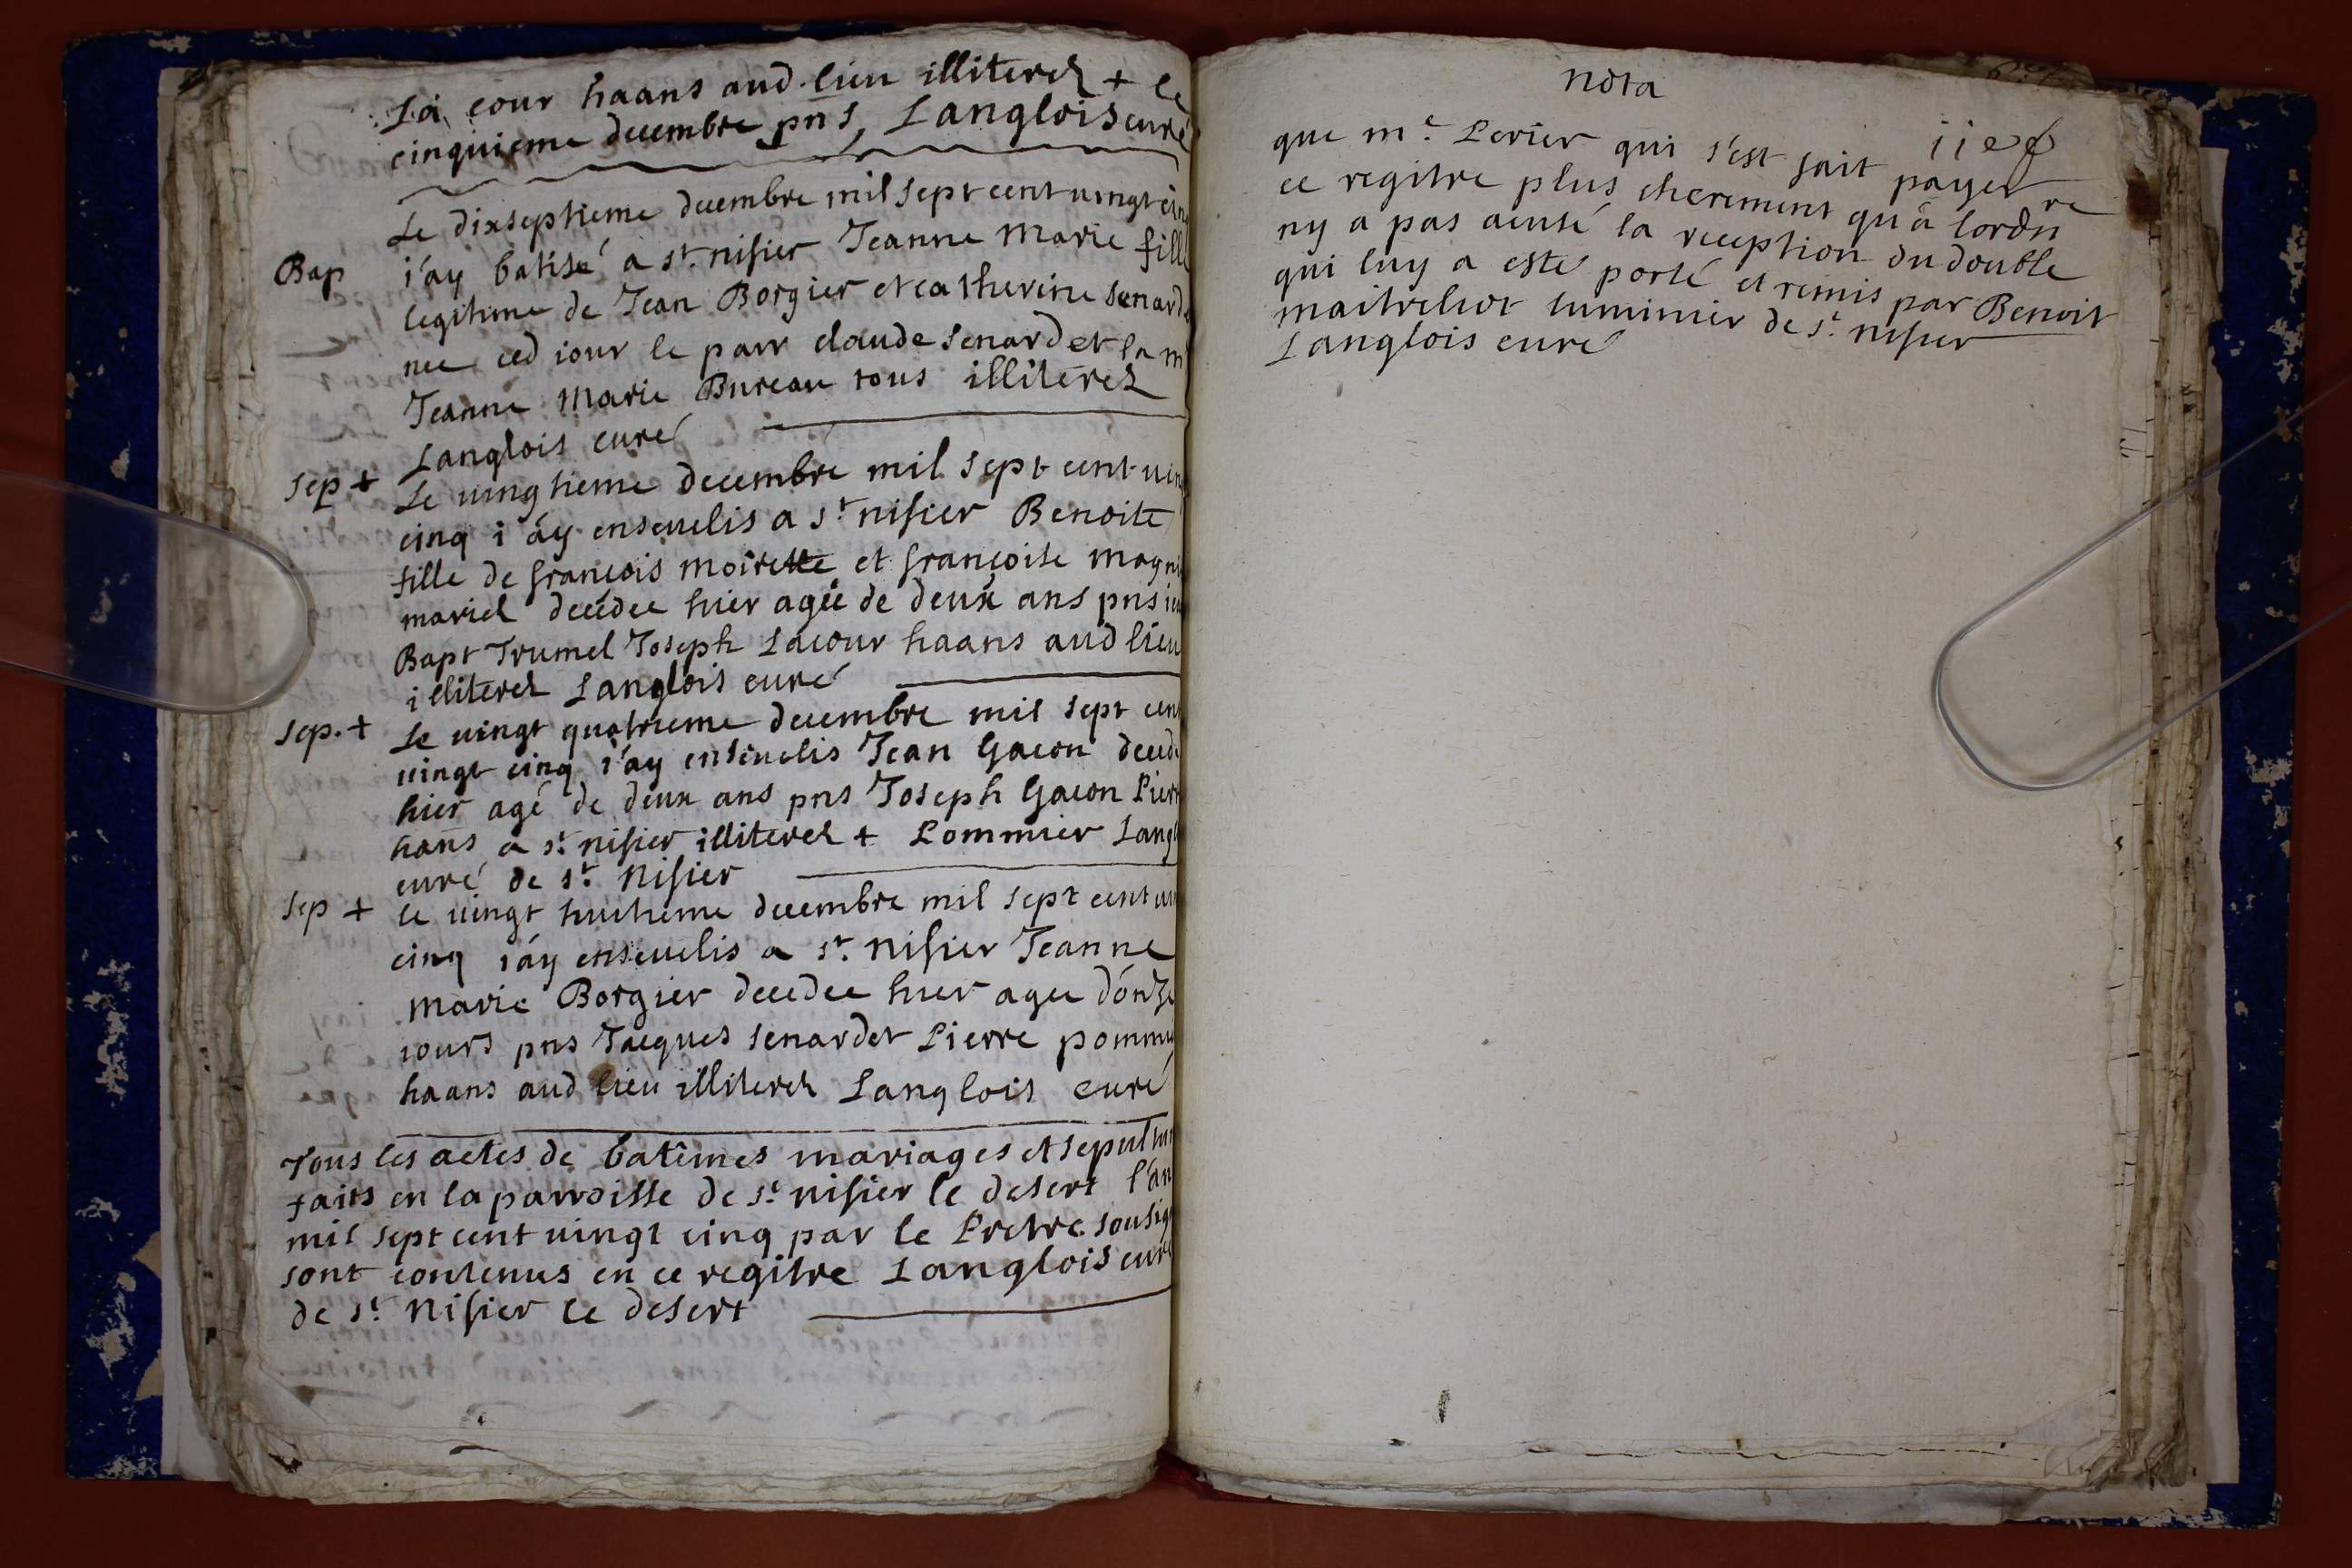 La cour haans aud. lieu illiterez + le
cinquieme decembre pns, Langlois curé
Le dixseptieme decembre mil sept cent uingt cinq
Bap
i'ay batisé a st. nisier Jeanne Marie fille
legitime de Jean Borgier et catherine senard
nee ced iour le parr claude senardet la m
Jeanne Marie Bureau tous illiterez
Langlois curé
sep +
Le uingtieme decembre mil sept cent uin
cinq i'ay enseuelis a st. nisier Benoite
fille de françois moirette et françoise magni
mariez decedee hier agée de deux ans pns
Bapt Trumel Joseph Lacour haans aud lieu
illiterez Langlois curé
sep. +
Le uingt quatrieme decembre mil sept cent
uingt cinq i'ay enseuelis Jean Gacon decedé
hier agé de deux ans pns Joseph Gacon Pierr
hans a st. nisier illiterez + Pommier Langl
curé de st. Nisier
sep +
le uingt huitieme decembre mil sept cent uin
cinq i'ay enseuelis a st. nisier Jeanne
marie Borgier decedee hier agee d'onze
iours pns Jacques senardet Pierre pommi
haans aud lieu illiterez Langlois curé
Tous les actes de batêmes mariages et sepultur
faits en la parroisse de st. nisier le desert l'an
mil sept cent uingt cinq par le Pretre sousig
sont contenus en ce regitre Langlois curé
de st. Nisier le desert
nota
que me. Perier qui s'est fait payer
ce regitre plus cherement qu'à lordre
ny a pas acusé la reception du double
qui luy a esté porté et remis par Benoit
maitreliot luminier de st. nisier
Langlois curé